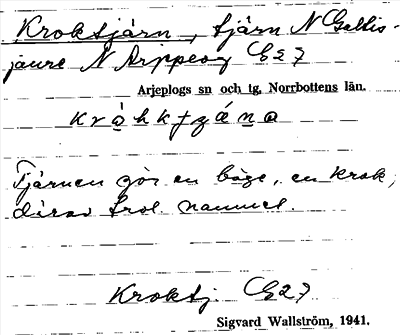 Kroktjärn, tjärn N Galtis-
jaure N Arjeplog C27
Arjeplogs sn och tg, Norrbottens län.
Tjärnen gör en båge, en krok,
därav trol. namnet.
Kroktj. C27
Sigvard Wallström, 1941.